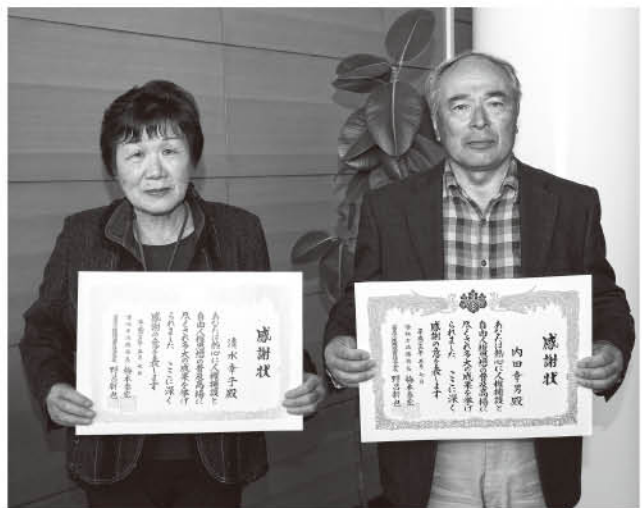 感謝状
清水幸子殿
あなたは熱心に人権擁護と
自由人権思想の普及高揚に
尽くされ多大の成果を挙げ
られました ここに深く
感謝の意を表します
感謝状
内田幸男殿
あなたは熱心に人権擁護と
自由人権思想の普及高揚に
尽くされ多大の成果を挙げ
られました ここに深く
感謝の意を表します